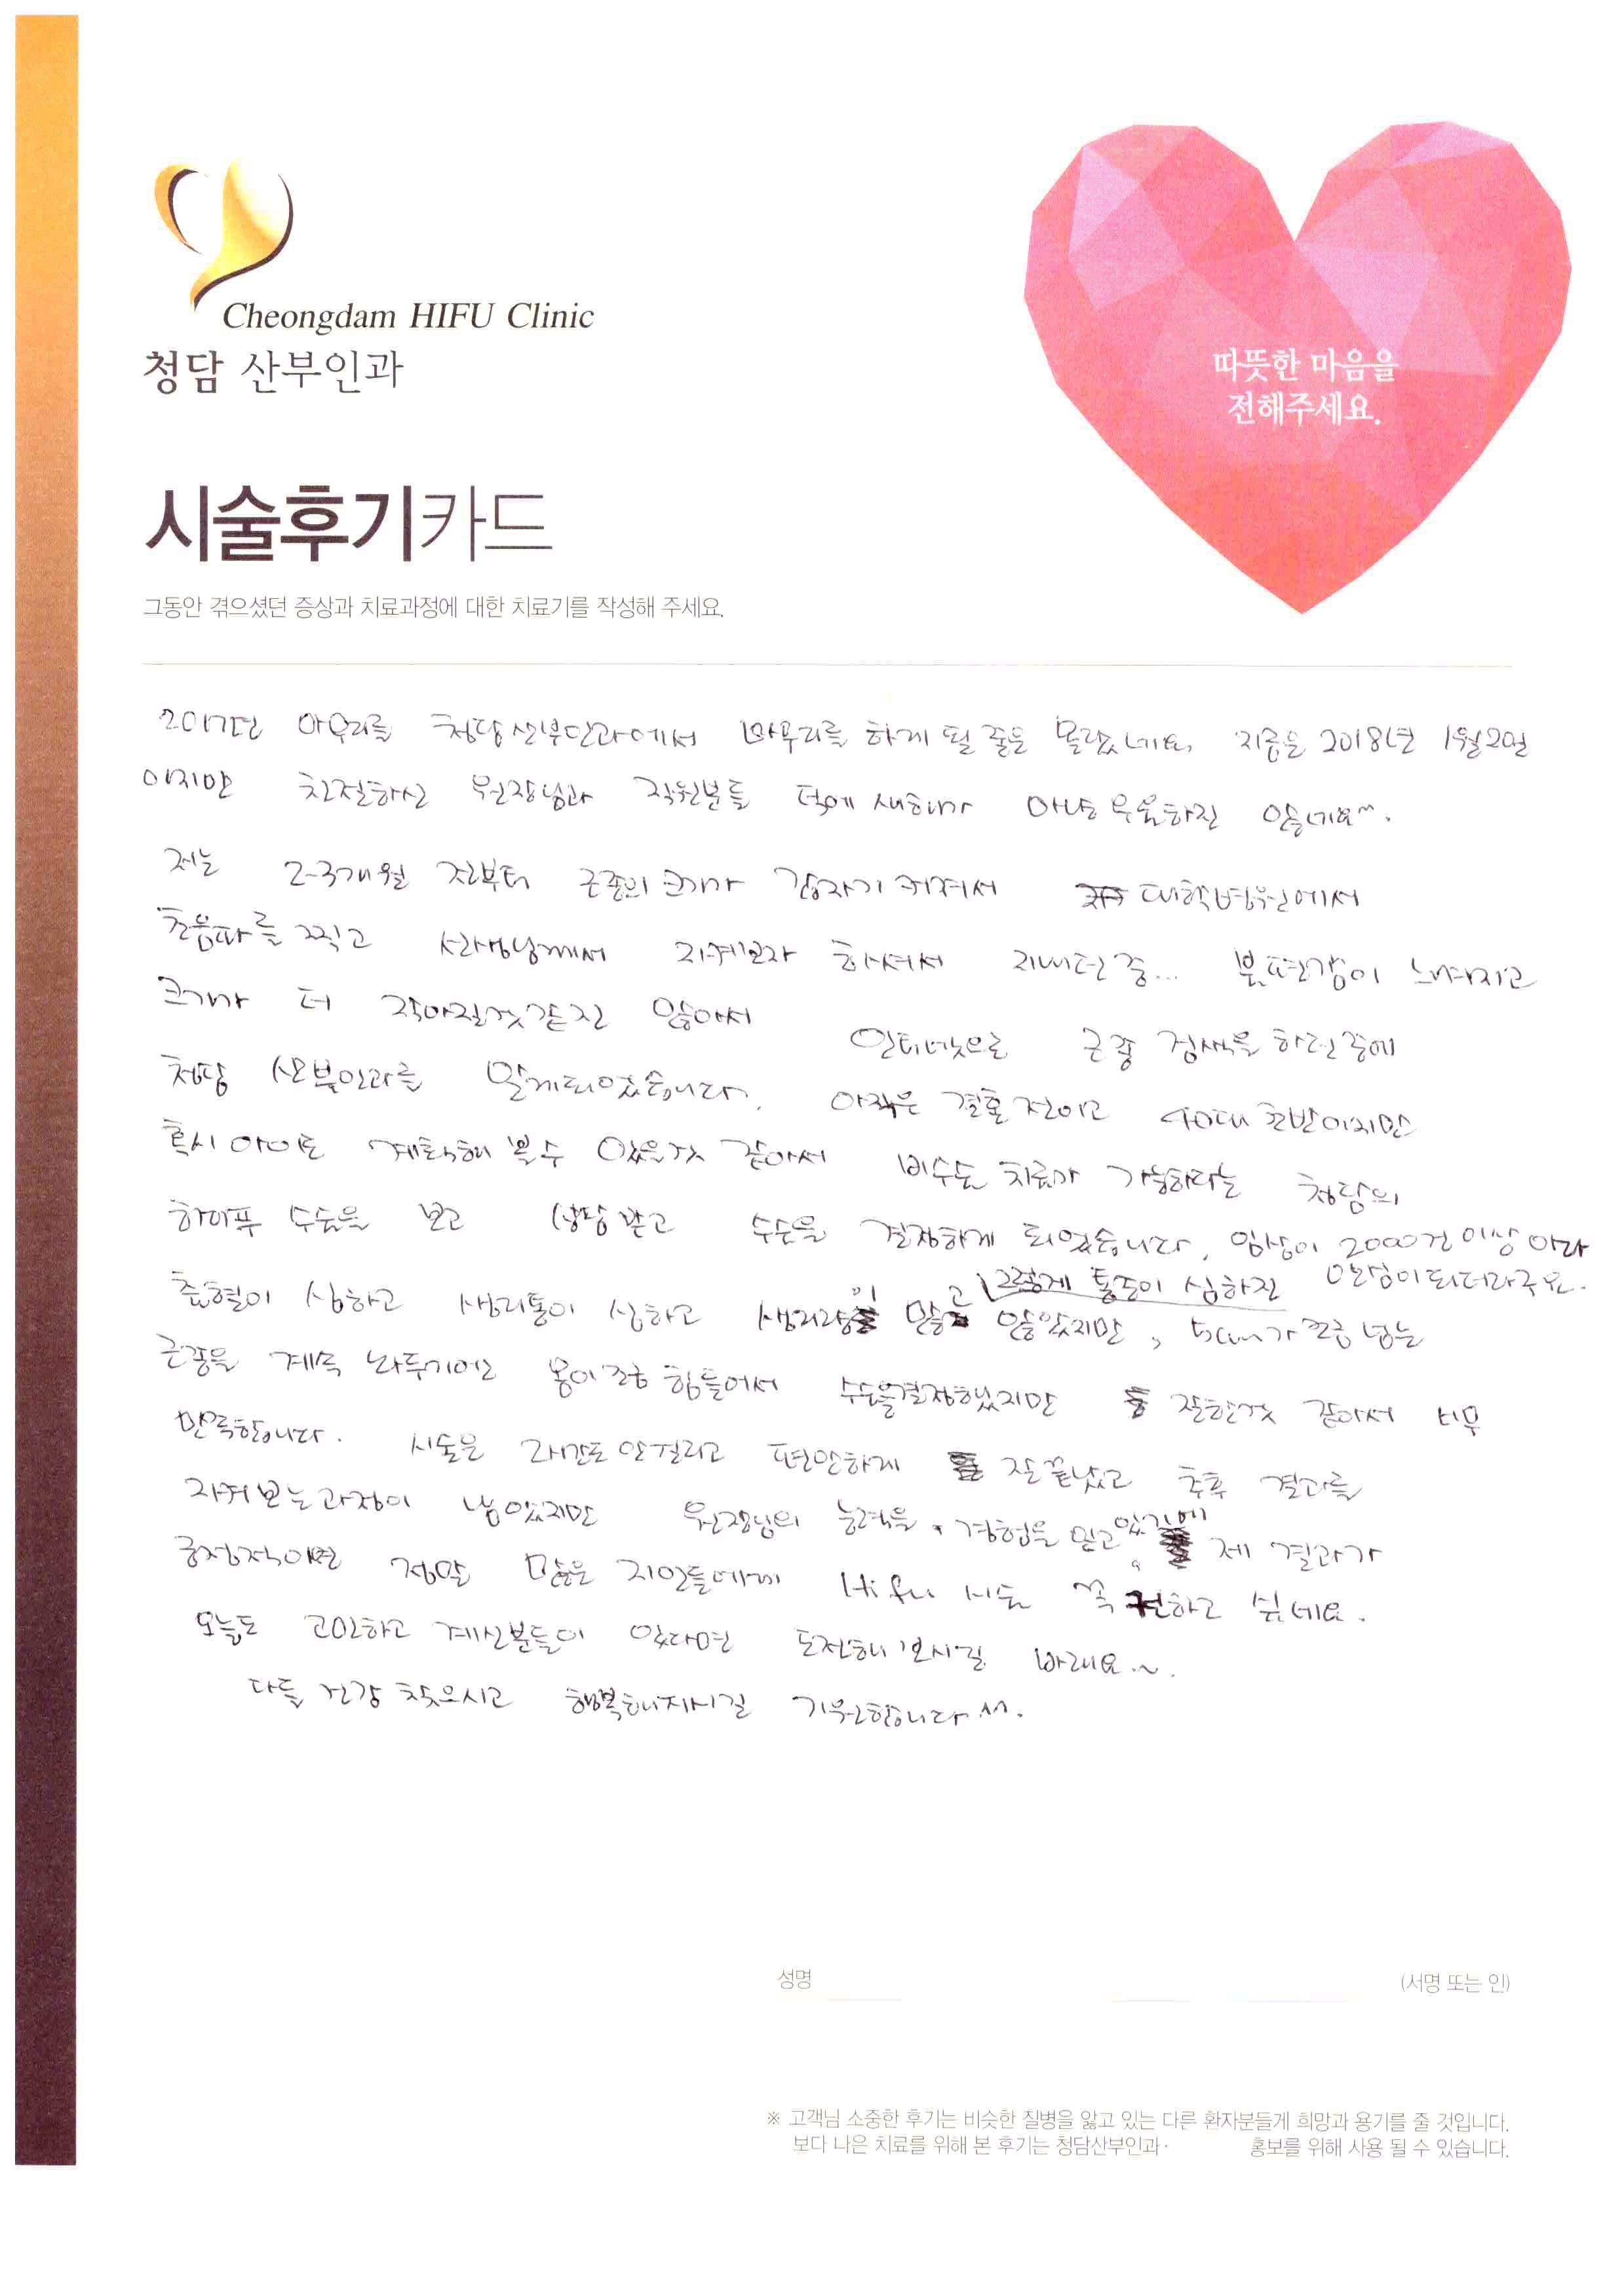 Cheongdam HIFU Clinic
청담 산부인과
따뜻한 마음을
전해주세요.
시술후기카드
그동안 겪으셨던 증상과 치료과정에 대한 치료기를 작성해 주세요.
2017년 마무리를 청담산부인과에서 마무리를 하게 될 줄은 몰랐네요. 지금은 2018년 1월2일
이지만 친절하신 원장님과 직원분들 덕에 새해가 마냥 우울하진 않네요~.
저는 2-3개월 전부터 근종의 크기가 갑자기 커져서 대학병원에서
초음파를 찍고 선생님께서 지켜보자 하셔서 지내던 중... 불편감이 느껴지고
크기가 더 작아질것 같진 않아서 인터넷으로 근종 검색을 하던 중에
청담 산부인과를 알게되었습니다. 아직은 결혼 전이고 40대 초반이지만
혹시 아이도 계획해 볼 수 있을것 같아서 비수술 치료가 가능하다는 청담의
하이푸 수술을 보고 상담 받고 수술을 결정하게 되었습니다. 임상이 2000건 이상이라 안심이 되더라구요.
출혈이 심하고 생리통이 심하고 생리량이 많고 그렇게 통증이 심하진 않았지만, 5cm가 조금 넘는
근종을 계속 놔두기에는 몸이 조금 힘들어서 수술을 결정했지만 잘한것 같아서 너무
만족합니다. 시술은 2시간도 안걸리고 편안하게 잘 끝났고 추후 결과를
지켜보는 과정이 남았지만 원장님의 능력을, 경험을 믿고 있기에 제 결과가
긍정적이면 정말 많은 지인들에게 Hifu 시술 꼭 권하고 싶네요.
오늘도 고민하고 계신분들이 있다면 도전해 보시길 바래요~.
다들 건강 찾으시고 행복해지시길 기원합니다^^.
성명 (서명 또는 인)
※ 고객님 소중한 후기는 비슷한 질병을 앓고 있는 다른 환자분들게 희망과 용기를 줄 것입니다.
보다 나은 치료를 위해 본 후기는 청담산부인과· 홍보를 위해 사용 될 수 있습니다.